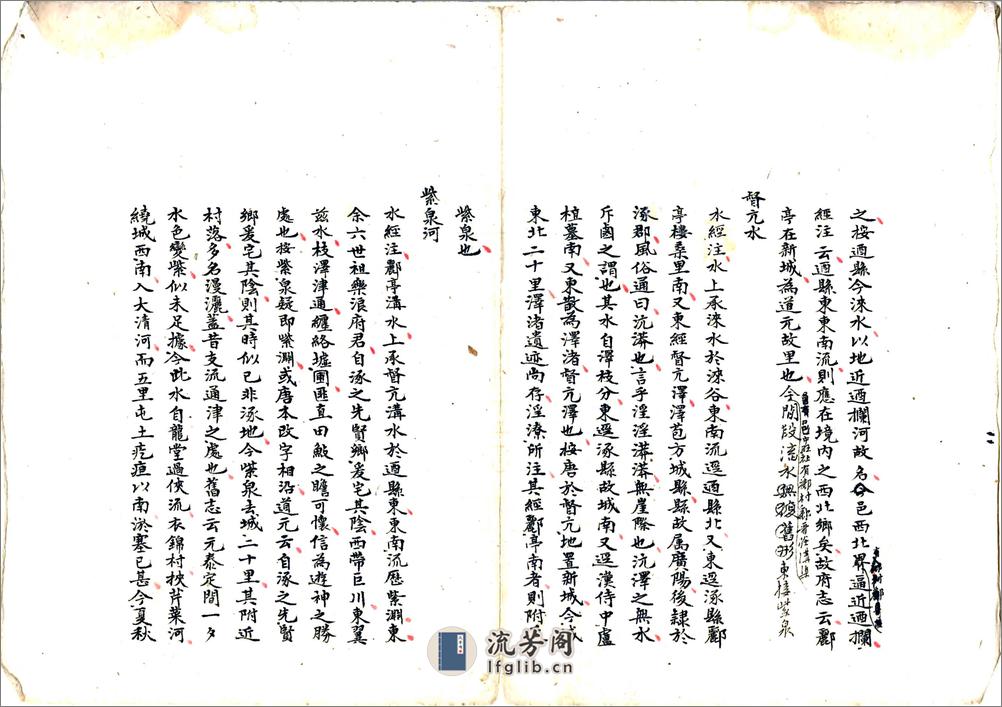 之按遒縣今淶水以地近遒欄河故名今邑西北界逼近遒欄
經注云遒縣東東南流則應在境內之西北鄉矣故府志云酈
亭在新城為道元故里也今
東接紫泉
督亢水
水經注水上承淶水於淶谷東南流逕遒縣北又東逕涿縣酈
亭樓桑里南又東經督亢澤澤苞方城縣縣故属廣陽後隸於
涿郡風俗通曰沆漭也言乎淫淫漭漭無崖際也沆澤之無水
斥鹵之謂也其水自澤枝分東逕涿縣故城南又逕漢侍中盧
植墓南又東散為澤渚督亢澤也按唐於督亢地置新城今城
東北二十里澤渚遺迹尚存淫潦所注其經酈亭南者則附
紫泉也
紫泉河
水經注酈亭溝水上承督亢溝水於遒縣東東南流歷紫淵東
余六世祖樂浪府君自涿之先賢鄉爰宅其陰西帶巨川東翼
茲水枝澤津通纏絡墟圃匪直田鮍之贍可懷信為遊神之勝
處也按紫泉疑即紫淵或唐本改字相沿道元云自涿之先賢
鄉爰宅其陰則其時似已非涿地今紫泉去城二十里其附近
村落多名漫灑蓋昔支流通津之處也舊志云元泰定間一夕
水色變紫似未足據今此水自龍堂過俠流衣錦村挾芹菜河
繞城西南入大清河而五里屯土疙疸以南淤塞已甚今夏秋
流芳阁
lfglib.cn